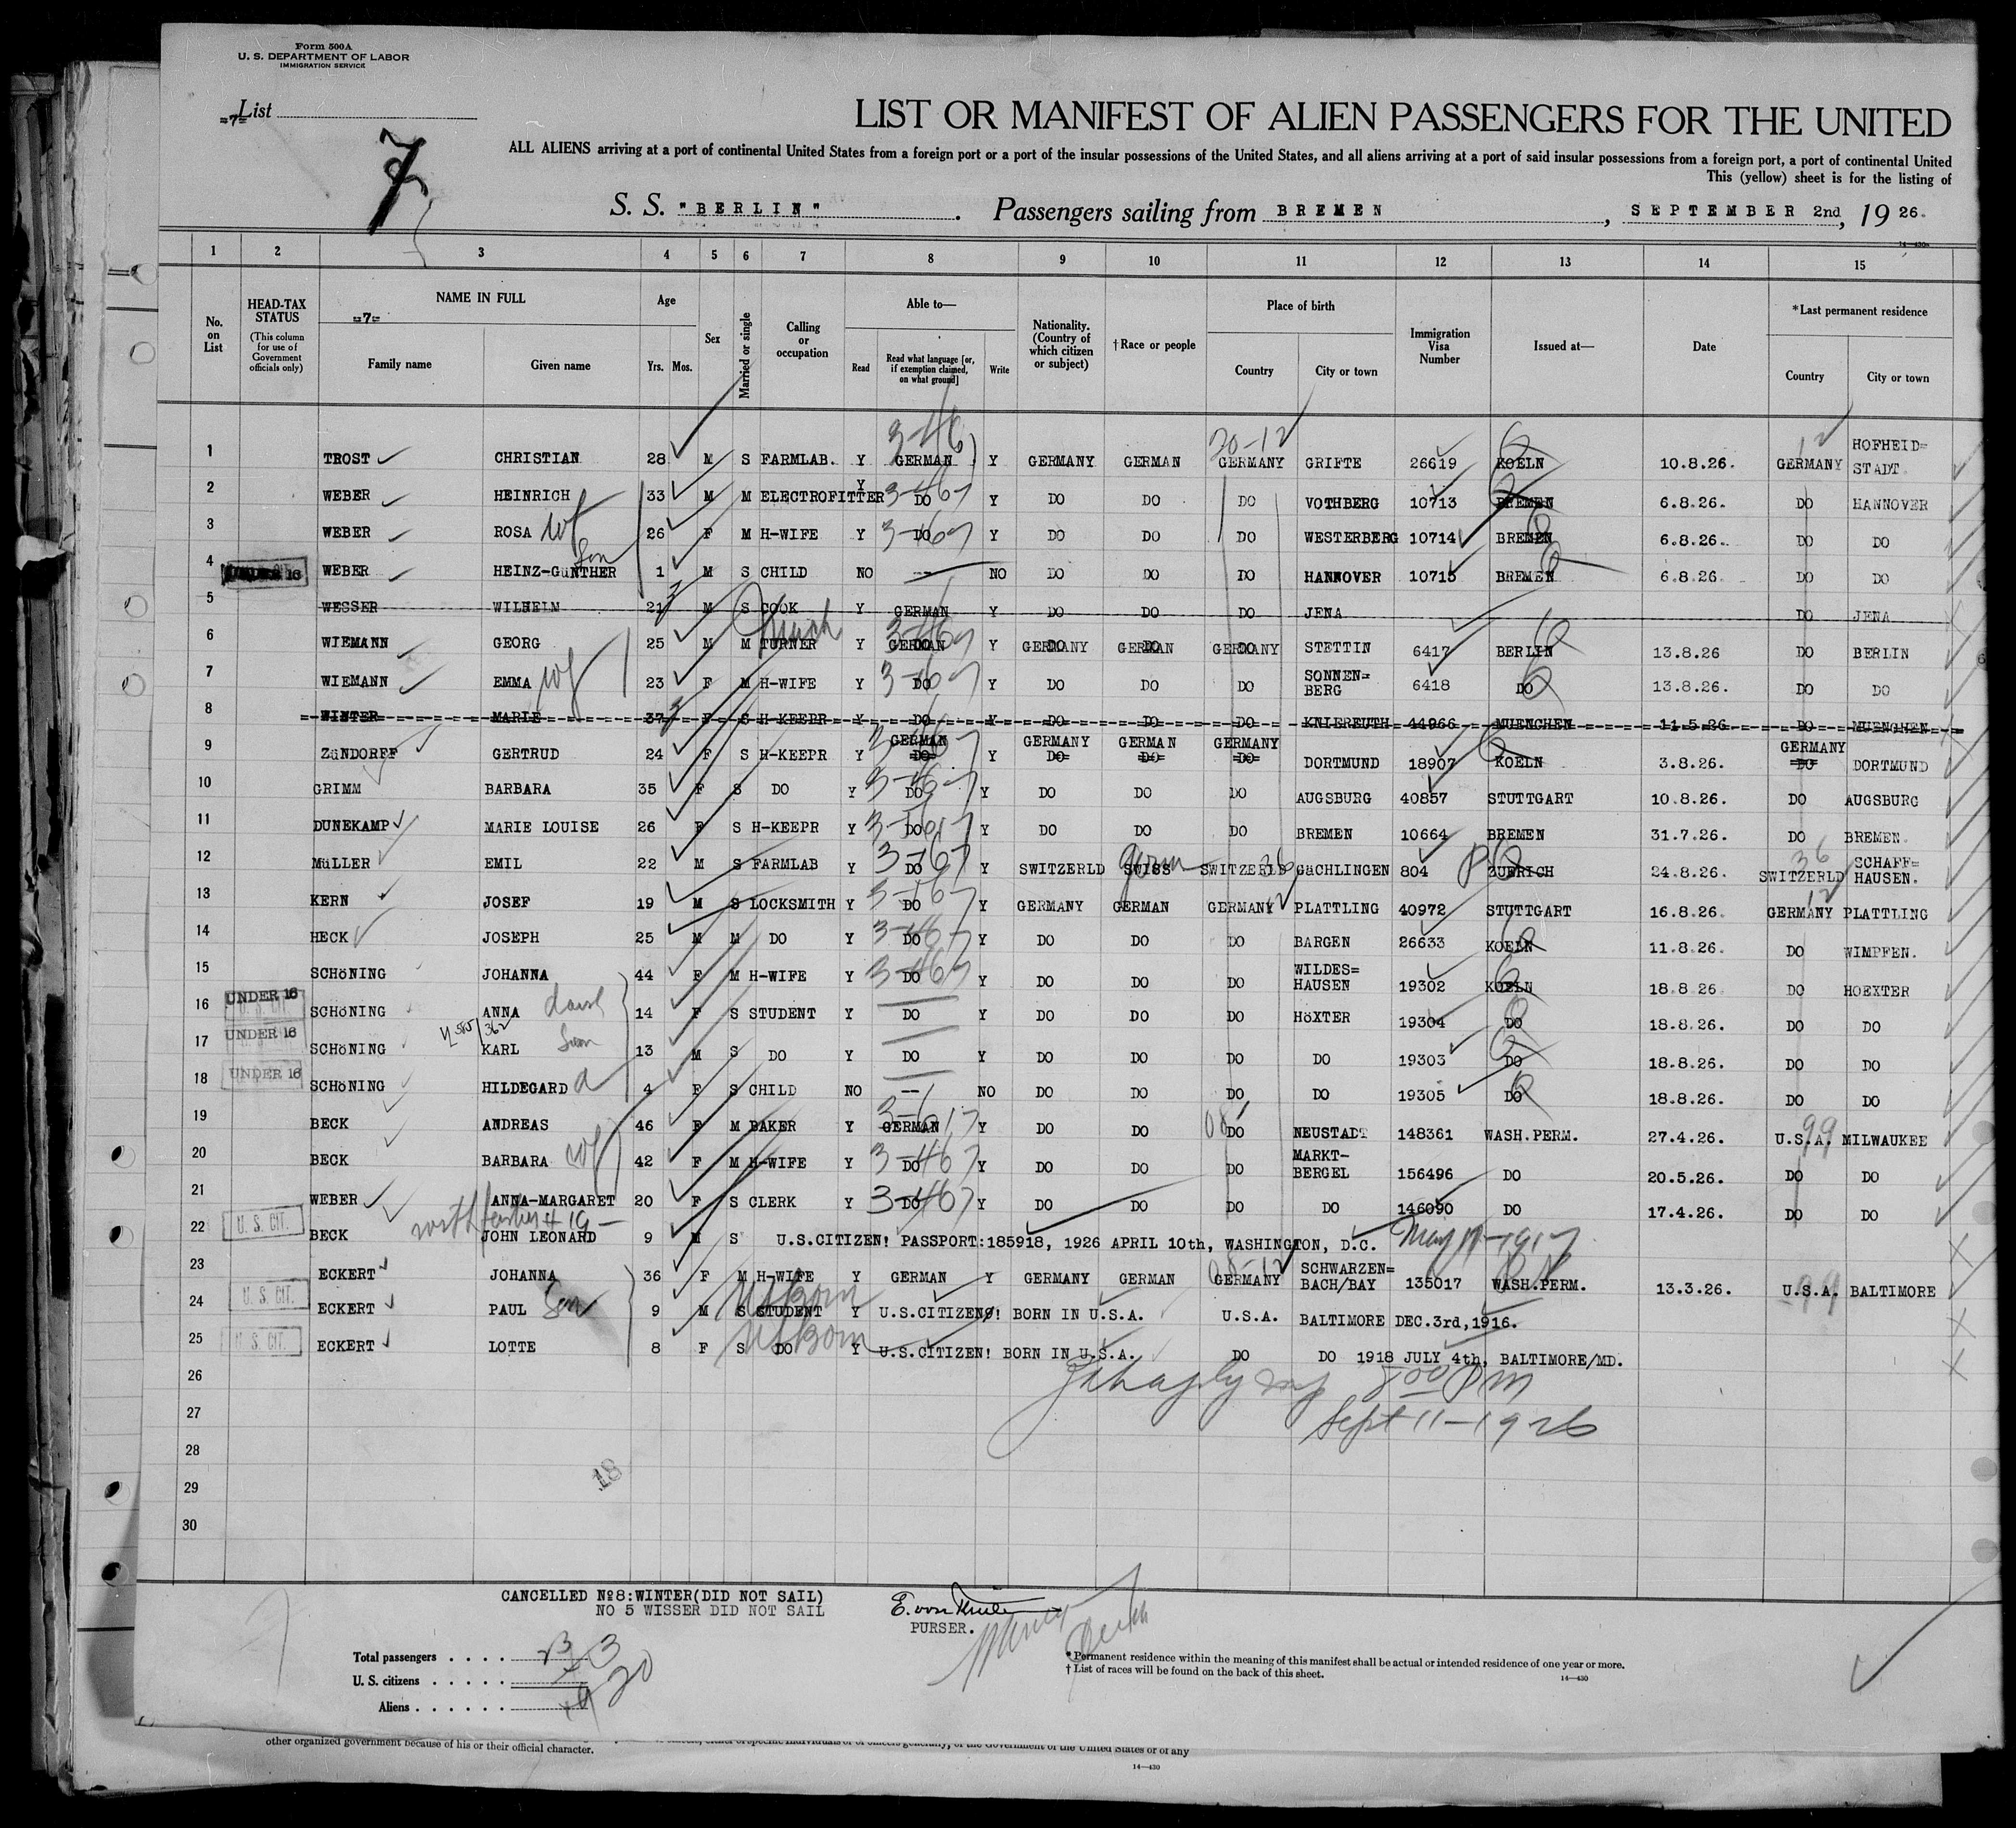 Form 500A
U. S. DEPARTMENT OF LABOR
IMMIGRATION SERVICE
List
=7=
7
LIST OR MANIFEST OF ALIEN PASSENGERS FOR THE UNITED
ALL ALIENS arriving at a port of continental United States from a foreign port or a port of the insular possessions of the United States, and all aliens arriving at a port of said insular possessions from a foreign port, a port of continental United
This (yellow) sheet is for the listing of
S. S. "BERLIN". Passengers sailing from BREMEN, SEPTEMBER 2nd, 19 26.
14—430
1 2 3 4 5 6 7 8 9 10 11 12 13 14 15
No. on List
HEAD-TAX STATUS
(This column for use of Government officials only)
NAME IN FULL
=7=
Family name Given name
Age
Yrs. Mos.
Sex
Married or single
Calling or occupation
Able to—
Read
Read what language [or, if exemption claimed, on what ground]
Write
Nationality. (Country of which citizen or subject)
† Race or people
Place of birth
Country City or town
Immigration Visa Number
Issued at—
Date
* Last permanent residence
Country City or town
1 TROST CHRISTIAN 28 M S FARMLAB. Y GERMAN Y GERMANY GERMAN GERMANY GRIFTE 26619 KOELN 10.8.26. GERMANY HOFHEID= STADT
2 WEBER HEINRICH 33 M M ELECTROFITTER Y DO Y DO DO DO VOTHBERG 10713 BREMEN 6.8.26. DO HANNOVER
3 WEBER ROSA wf 26 F M H-WIFE Y DO Y DO DO DO WESTERBERG 10714 BREMEN 6.8.26. DO DO
4 UNDER 16 WEBER HEINZ-GüNTHER Son 1 M S CHILD NO -- NO DO DO DO HANNOVER 10715 BREMEN 6.8.26. DO DO
5 WESSER WILHELM 21 M S COOK Y GERMAN Y DO DO DO JENA DO JENA
6 WIEMANN GEORG 25 M M TURNER Y GERMAN Y GERMANY GERMAN GERMANY STETTIN 6417 BERLIN 13.8.26 DO BERLIN
7 WIEMANN EMMA wf 23 F M H-WIFE Y DO Y DO DO DO SONNEN= BERG 6418 DO 13.8.26. DO DO
8 WINTER MARIE 37 F S H-KEEPR Y DO Y DO DO DO KNIEREUTH 44966 MUENCHEN 11.5.26 DO MUENCHEN
9 ZüNDORFF GERTRUD 24 F S H-KEEPR Y GERMAN DO Y GERMANY DO GERMAN DO GERMANY DO DORTMUND 18907 KOELN 3.8.26. GERMANY DO DORTMUND
10 GRIMM BARBARA 35 F S DO Y DO Y DO DO DO AUGSBURG 40857 STUTTGART 10.8.26. DO AUGSBURG
11 DUNEKAMP MARIE LOUISE 26 F S H-KEEPR Y DO Y DO DO DO BREMEN 10664 BREMEN 31.7.26. DO BREMEN.
12 MüLLER EMIL 22 M S FARMLAB Y DO Y SWITZERLD SWISS germ SWITZERLD GäCHLINGEN 804 ZUERICH 24.8.26. SWITZERLD SCHAFF= HAUSEN.
13 KERN JOSEF 19 M S LOCKSMITH Y DO Y GERMANY GERMAN GERMANY PLATTLING 40972 STUTTGART 16.8.26. GERMANY PLATTLING
14 HECK JOSEPH 25 M M DO Y DO Y DO DO DO BARGEN 26633 KOELN 11.8.26. DO WIMPFEN.
15 SCHöNING JOHANNA 44 F M H-WIFE Y DO Y DO DO DO WILDES= HAUSEN 19302 KOELN 18.8.26 DO HOEXTER
16 UNDER 16 SCHöNING ANNA 14 F S STUDENT Y DO Y DO DO DO HöXTER 19304 DO 18.8.26. DO DO
17 UNDER 16 SCHöNING KARL 13 M S DO Y DO Y DO DO DO DO 19303 DO 18.8.26. DO DO
18 UNDER 16 SCHöNING HILDEGARD d 4 F S CHILD NO -- NO DO DO DO DO 19305 DO 18.8.26. DO DO
19 BECK ANDREAS 46 F M BAKER Y GERMAN Y DO DO DO NEUSTADT 148361 WASH.PERM. 27.4.26. U.S.A. MILWAUKEE
20 BECK BARBARA wf 42 F M H-WIFE Y DO Y DO DO DO MARKT- BERGEL 156496 DO 20.5.26. DO DO
21 WEBER ANNA-MARGARET 20 F S CLERK Y DO Y DO DO DO DO 146090 DO 17.4.26. DO DO
22 U. S. CIT. BECK with father # 19 — JOHN LEONARD 9 M S U.S.CITIZEN! PASSPORT:185918, 1926 APRIL 10th, WASHINGTON, D.C.
23 ECKERT JOHANNA 36 F M H-WIFE Y GERMAN Y GERMANY GERMAN GERMANY SCHWARZEN= BACH/BAY 135017 WASH.PERM. 13.3.26. U.S.A. BALTIMORE
24 U. S. CIT. ECKERT PAUL Son 9 M S STUDENT Y U.S.CITIZEN! BORN IN U.S.A. U.S.A. BALTIMORE DEC.3rd,1916.
25 U. S. CIT. ECKERT LOTTE 8 F S DO Y U.S.CITIZEN! BORN IN U.S.A. DO DO 1918 JULY 4th, BALTIMORE/MD.
26
27 Sept 11 — 1926
28
29 18
30
CANCELLED Nº8:WINTER(DID NOT SAIL)
NO 5 WISSER DID NOT SAIL
PURSER.
Total passengers
U. S. citizens
Aliens 20
* Permanent residence within the meaning of this manifest shall be actual or intended residence of one year or more.
† List of races will be found on the back of this sheet.
14—430
other organized government because of his or their official character.
14—430